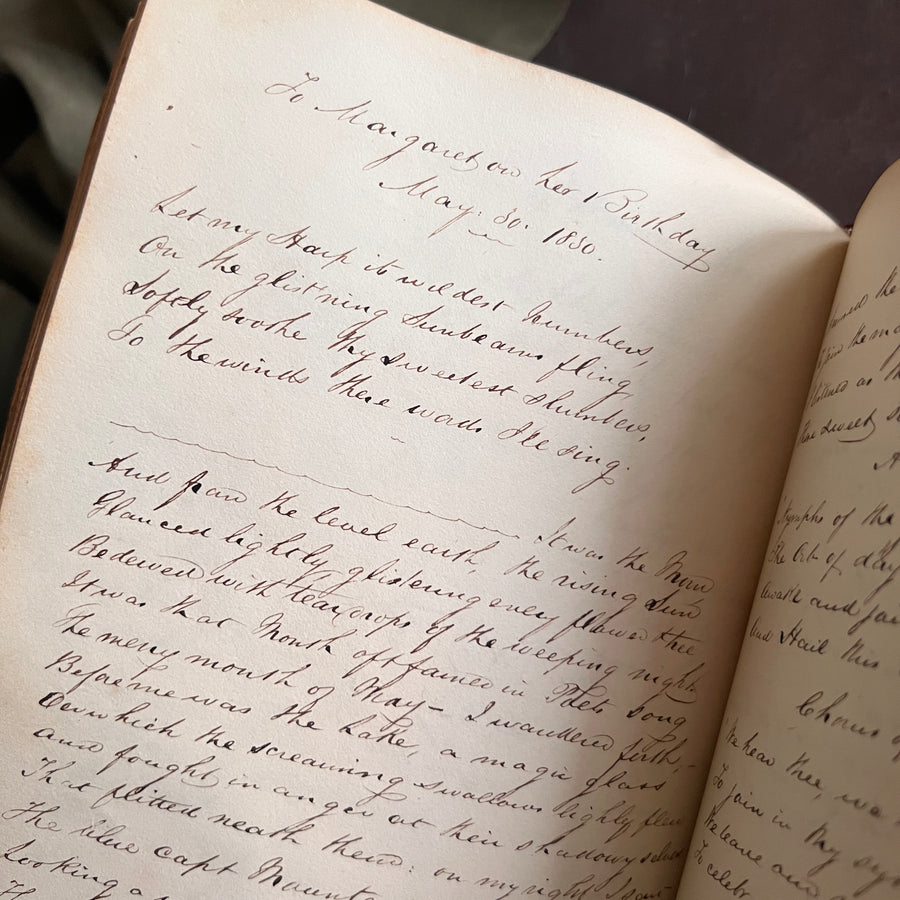 To Margaret on her Birthday
May. 30. 1830.
Let my Harp its wildest Numbers,
On the glist'ning Sunbeams fling
Softly soothe thy sweetest slumbers,
To the winds these words I'll sing.
It was the Morn
And from the level earth, the rising Sun
Glanced lightly glistening every flower & tree
Bedewed with tear drops of the weeping night
It was that Month oft famed in Poets song
The merry month of May – I wandered forth,
Before me was the Lake, a magic glass
Oer which the screaming swallows lightly flew
and fought in anger at their shadowy selves
That flitted neath them: on my right I saw
The blue capt Mount
Looking a
the
sweet
of the
The Orb of day
and
And Hail this
Chorus of
We hear thee, we
To join in thy
We leave
To